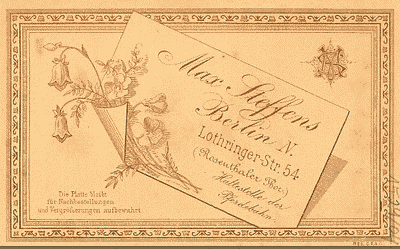 Max Steffens
Berlin N.
Lothringer-Str. 54
(Rosenthaler Thor)
Haltestelle der
Pferdebahn.
Die Platte bleibt
für Nachbestellungen
und Vergrößerungen aufbewahrt.